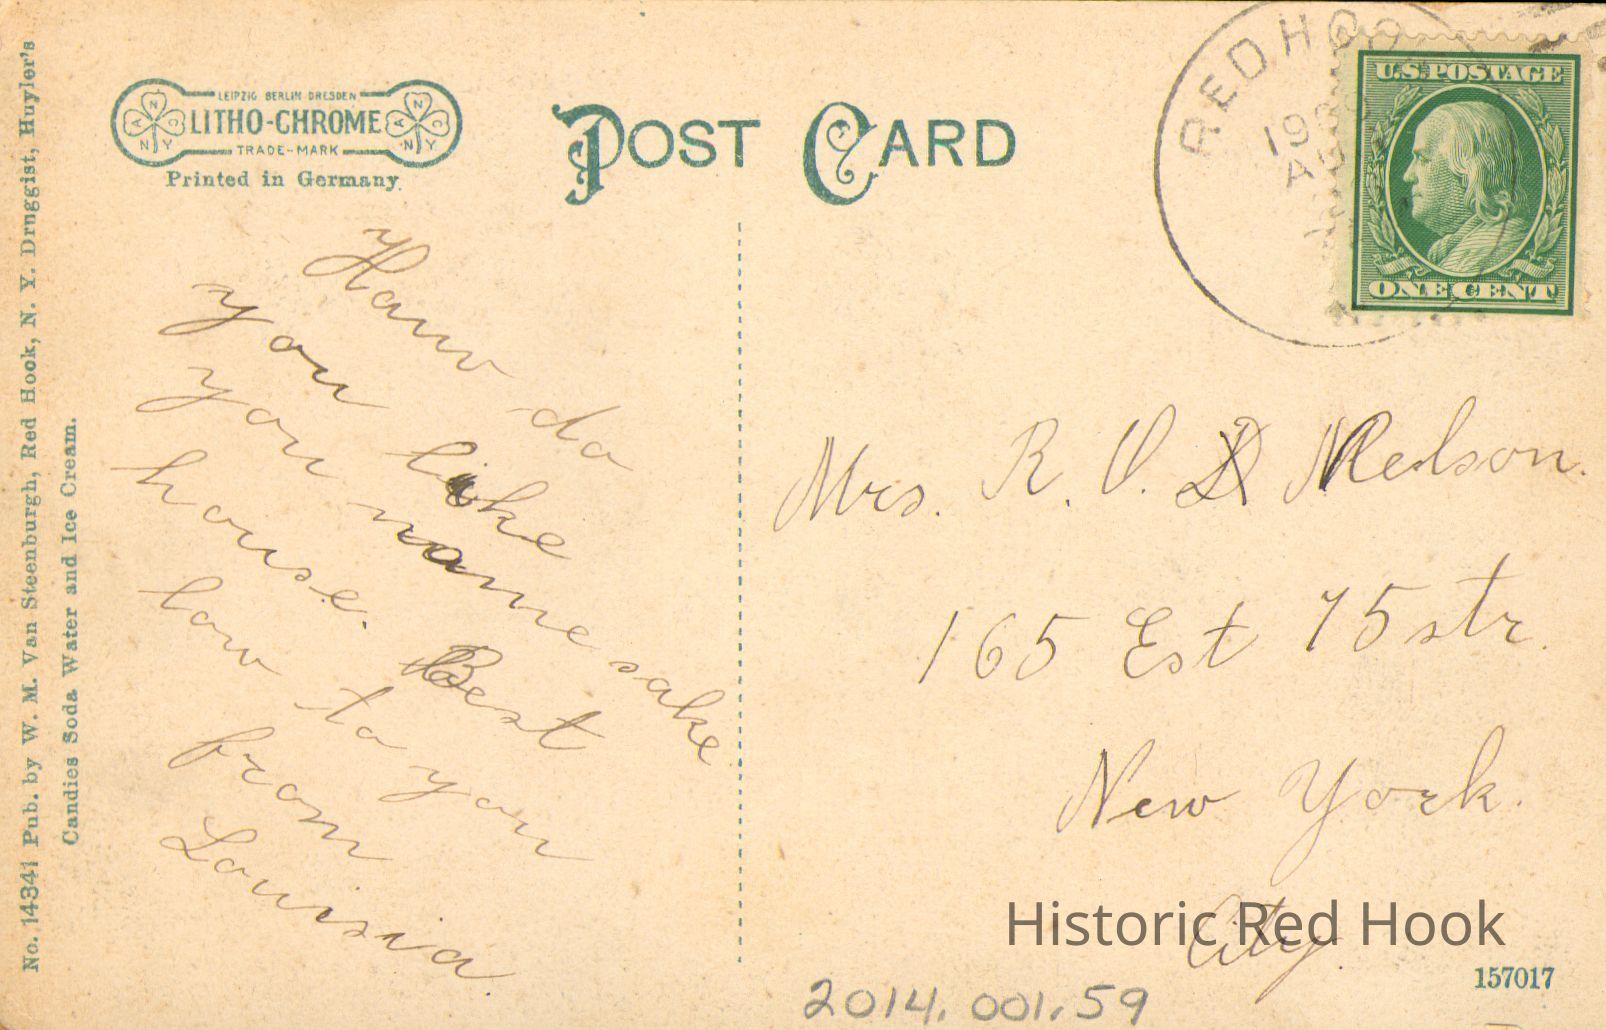 No. 14341 Pub. by W. M. Van Steenburgh, Red Hook, N. Y. Drnggist, Huyler's
Candies Soda Water and Ice Cream.
LEIPZIG BERLIN DRESDEN
LITHO-CHROME
TRADE-MARK
Printed in Germany
POST CARD
RED HOO
U.S. POSTAGE
ONE CENT
Haw do
you like
your name sake
house. Best
low to your
from
Louisia.
Mrs. R. V. Nelson.
165 Est 75 str.
New York.
City.
Historic Red Hook
157017
2014.001.59